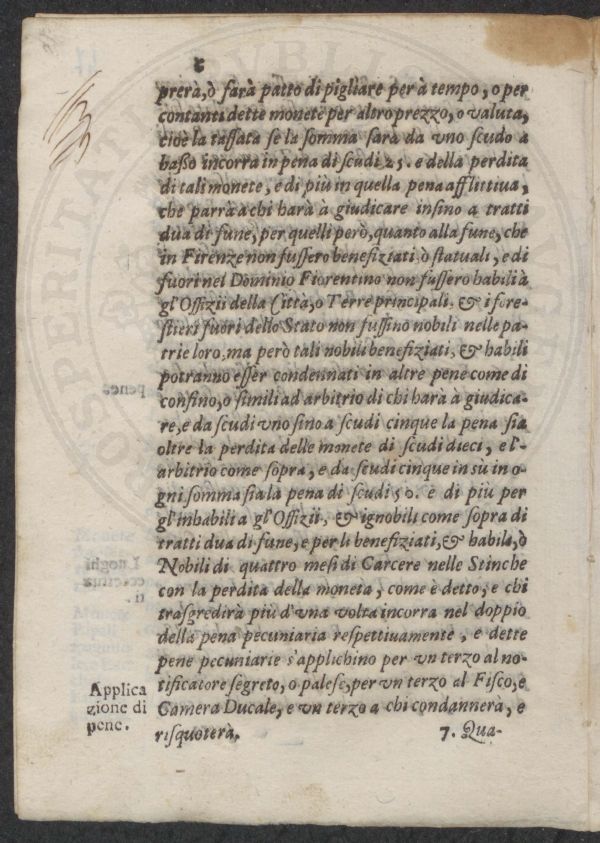 prerà, ò farà patto di pigliare per à tempo, o per
contanti dette monete per altro prezzo, o valuta,
cioè la tassata se la somma sarà da vno scudo a
basso incorra in pena di scudi 25. e della perdita
di tali monete, e di più in quella pena afflittiua,
che parrà a chi harà à giudicare insino a tratti
dua di fune, per quelli però, quanto alla fune, che
in Firenze non fussero benefiziati, ò statuali, e di
fuori nel Dominio Fiorentino non fussero habili à
gl'Offizii della Città, o Terre principali, & i fore-
stieri fuori dello Stato non fussino nobili nelle pa-
trie loro, ma però tali nobili benefiziati, & habili
potranno esser condennati in altre pene come di
confino, o simili ad arbitrio di chi harà à giudica-
re, e da scudi vno sino a scudi cinque la pena sia
oltre la perdita delle monete di scudi dieci, e l'-
arbitrio come sopra, e da scudi cinque in su in o-
gni somma sia la pena di scudi 50. e di più per
gl'inhabili a gl'Offizii, & ignobili come sopra di
tratti dua di fune, e per li benefiziati, & habili, ò
Nobili di quattro mesi di Carcere nelle Stinche
con la perdita della moneta, come è detto, e chi
trasgredirà più d'vna volta incorra nel doppio
della pena pecuniaria respettiuamente, e dette
pene pecuniarie s'applichino per vn terzo al no-
tificatore segreto, o palese, per vn terzo al Fisco, e
Camera Ducale, e vn terzo a chi condannerà, e
risquoterà.
7. Qua-
Applica
zione di
pene.